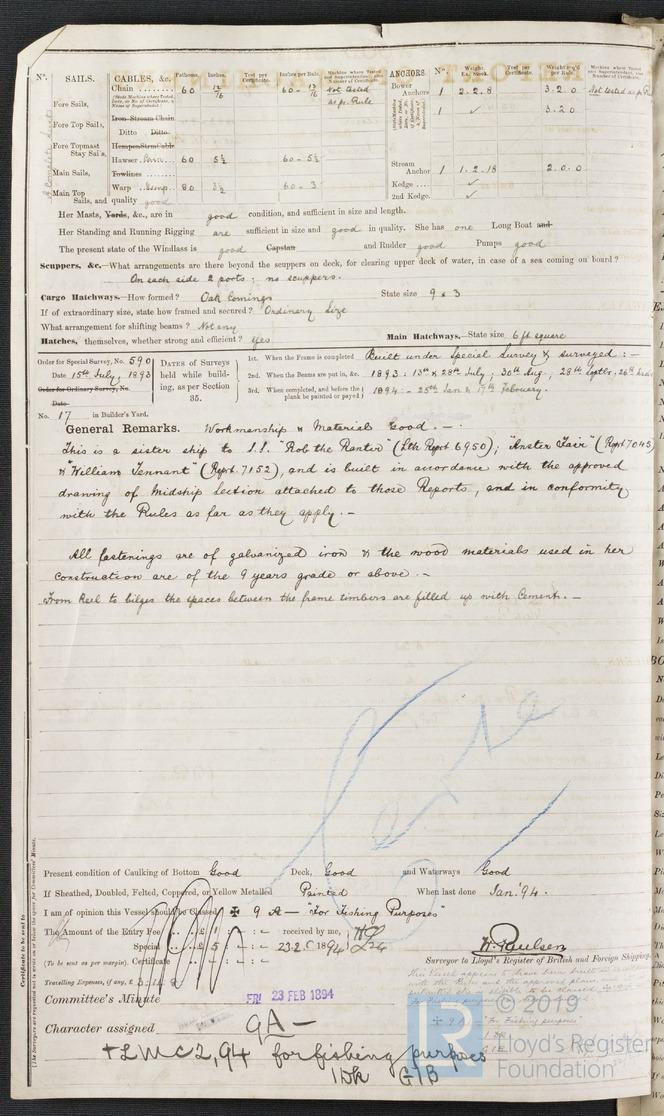 Nº. SAILS. CABLES, &c. Fathoms. Inches. Test per Certificate. Inches per Rule. Machine where Tested and Superintendent, also Number of Certificate. ANCHORS. Nº. Weight. Ex. Stock. Test per Certificate. Weight req'd per Rule. Machine where Tested
Chain 60 12/16 60 - Not tested as pr. Rule Bower Anchors 1 2.2.8 3.2.0 Not tested as pr
Fore Sails, Iron Stream Chain 1 ✓ 3.2.0
Fore Top Sails, Ditto Ditto
Fore Topmast Stay Sails, Hempen Strm Cable
Hawser 60 5½ 60 - 5½ Stream Anchor 1 1.2.18 2.0.0
Main Sails, Towlines Kedge ✓
Main Top Sails, and quality good Warp Hemp 80 60 - 3 2nd Kedge. ✓
Her Masts, Yards, &c., are in good condition, and sufficient in size and length.
Her Standing and Running Rigging are sufficient in size and good in quality. She has one Long Boat and
The present state of the Windlass is good Capstan and Rudder good Pumps good
Scuppers, &c.—What arrangements are there beyond the scuppers on deck, for clearing upper deck of water, in case of a sea coming on board?
On each side 2 ports; no scuppers.
Cargo Hatchways.—How formed? Oak Comings State size 9 x 3
If of extraordinary size, state how framed and secured? Ordinary Size
What arrangement for shifting beams? Not any
Hatches, themselves, whether strong and efficient? Yes Main Hatchways.—State size 6 ft square
Order for Special Survey, No. 590
Date 15th July, 1893
Order for Ordinary Survey, No.
Date
DATES of Surveys held while building, as per Section 35.
1st. When the Frame is completed Built under Special Survey & surveyed: -
2nd. When the Beams are put in, &c. 1893: 13th & 28th July; 30th Aug; 28th Septbr, 26th
3rd. When completed, and before the plank be painted or payed 1894 - 25th Jan & 17th February.
No. 17 in Builder's Yard.
General Remarks. Workmanship & Materials Good. -
This is a sister ship to S.S. "Rob the Ranter" (Lth Report 6950); "Anster Fair" (Report 7045)
& "William Tennant" (Report 7152), and is built in accordance with the approved
drawing of Midship Section attached to those Reports, and in conformity
with the Rules as far as they apply. -
All fastenings are of galvanized iron & the wood materials used in her
construction are of the 9 years grade or above. -
From Keel to bilges the spaces between the frame timbers are filled up with Cement. -
Present condition of Caulking of Bottom Good Deck, Good and Waterways Good
If Sheathed, Doubled, Felted, Coppered, or Yellow Metalled Painted When last done Jan. '94.
I am of opinion this Vessel should be Classed ✠ 9 A — "For Fishing Purposes"
The Amount of the Entry Fee £ 1 : - : - received by me,
Special £ 5 : - : - 23.2.1894
(To be sent as per margin). Certificate : - : -
Travelling Expenses, if any, £
W. Paulsen
Surveyor to Lloyd's Register of British and Foreign Shipping.
Committee's Minute FRI 23 FEB 1894
Character assigned 9A -
+ LMC 2,94 for fishing purposes
1 Dk G I B
© 2019
LR
Lloyd's Register
Foundation
Certificate to be sent to